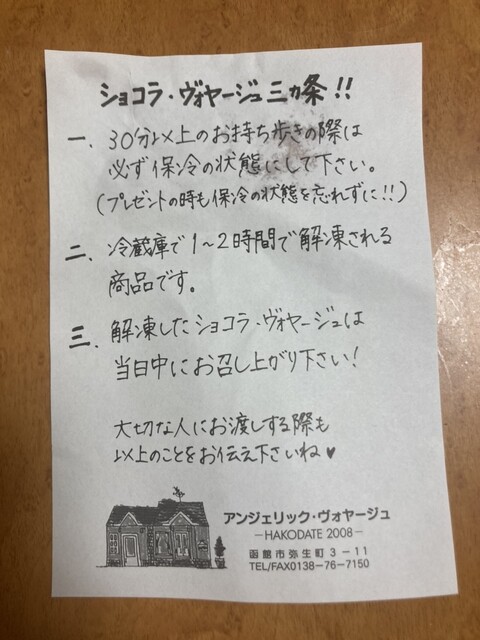 ショコラ・ヴォヤージュ三カ条!!
一、30分以上のお持ち歩きの際は
必ず保冷の状態にして下さい。
(プレゼントの時も保冷の状態を忘れずに!!)
二、冷蔵庫で1~2時間で解凍される
商品です。
三、解凍したショコラ・ヴォヤージュは
当日中にお召し上がり下さい!
大切な人にお渡しする際も
以上のことをお伝え下さいね♥
アンジェリック・ヴォヤージュ
—HAKODATE 2008—
函館市弥生町3-11
TEL/FAX0138-76-7150